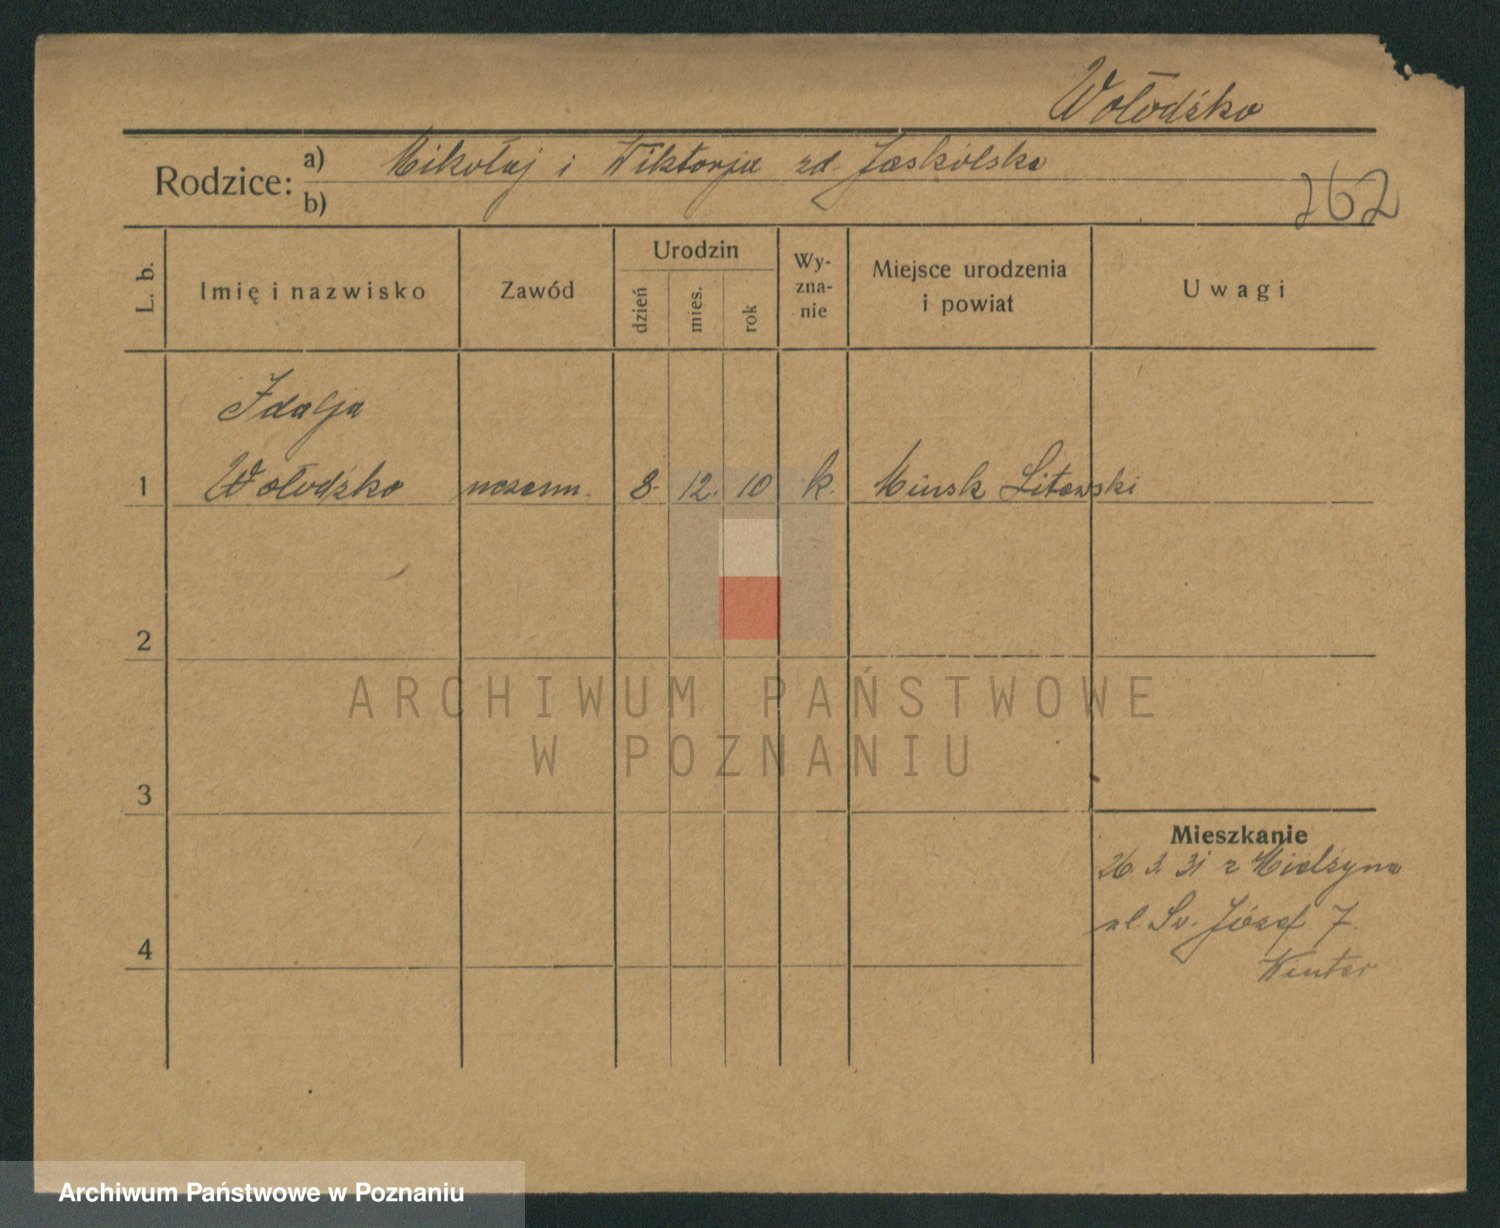 Wołodźko
Rodzice: a) Mikołaj i Wiktorja zd. Jaskólska
b)
262
L. b.
Imię i nazwisko
Zawód
Urodzin
dzień
mies.
rok
Wy-
zna-
nie
Miejsce urodzenia
i powiat
Uwagi
Idalja
1 Wołodźko uczenn. 8. 12. 10 k. Mińsk Litewski
2
ARCHIWUM PAŃSTWOWE
W POZNANIU
3
Mieszkanie
26. 3. 31 z Mielżyna
ul. Św. Józef 7.
Winter
4
Archiwum Państwowe w Poznaniu